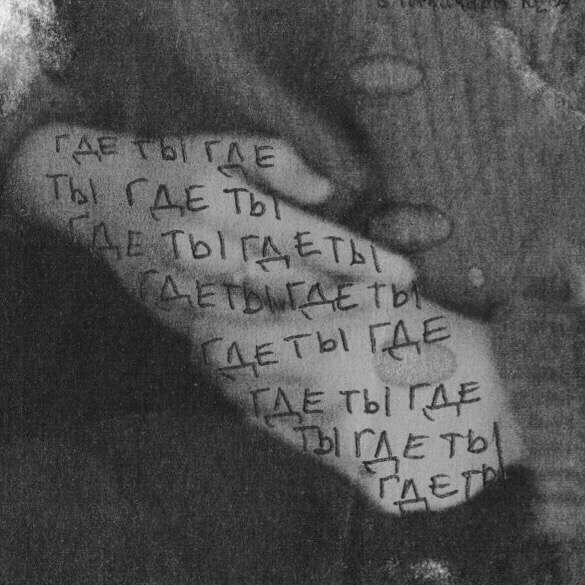 ГДЕ ТЫ ГДЕ
ТЫ ГДЕ ТЫ
ГДЕ ТЫ ГДЕ ТЫ
ГДЕ ТЫ ГДЕ ТЫ
ГДЕ ТЫ ГДЕ
ГДЕ ТЫ ГДЕ
ТЫ ГДЕ ТЫ
ГДЕ ТЫ